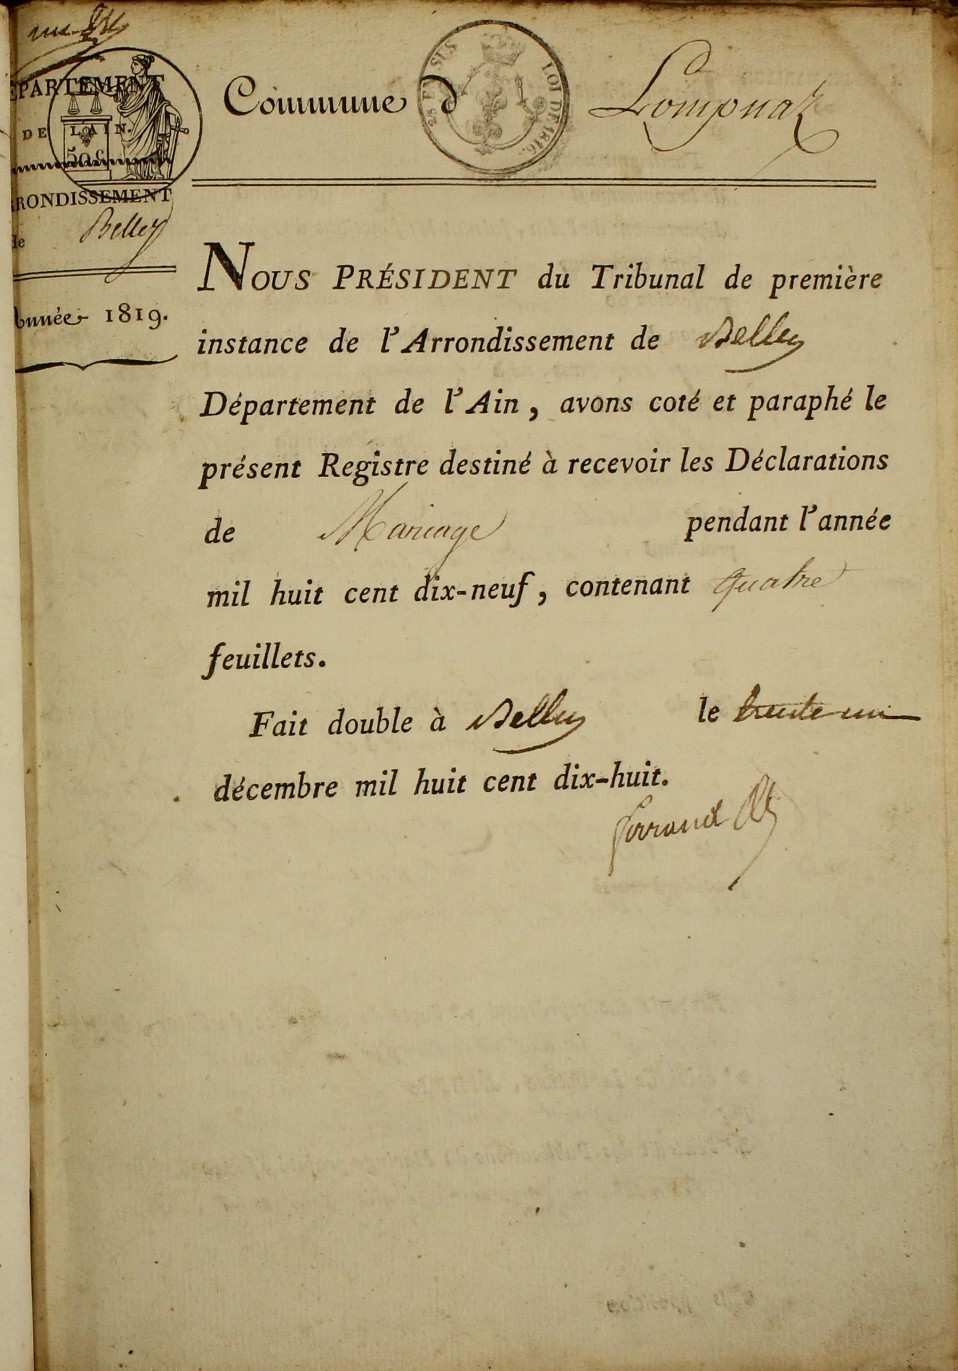 DÉPARTEMENT
DE L'AIN.
50c
ARRONDISSEMENT
de Belley
Année 1819.
Commune d Lompnaz
EN SUS
LOI DE 1816.
NOUS PRÉSIDENT du Tribunal de première
instance de l'Arrondissement de Belley
Département de l'Ain, avons coté et paraphé le
présent Registre destiné à recevoir les Déclarations
de Mariage pendant l'année
mil huit cent dix-neuf, contenant quatre
feuillets.
Fait double à Belley le trente-un
décembre mil huit cent dix-huit.